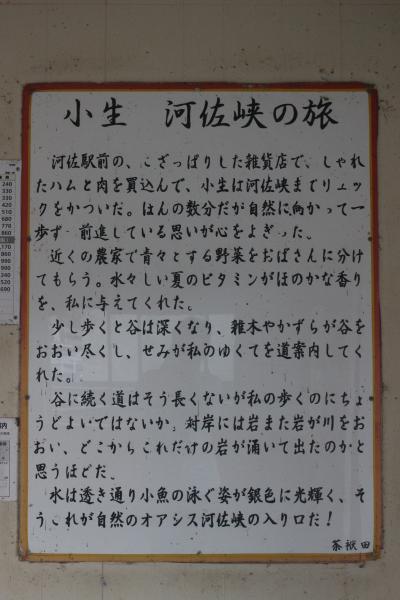 小生　河佐峡の旅
河佐駅前の、こざっぱりした雑貨店で、しゃれ
たハムと肉を買込んで、小生は河佐峡までリュッ
クをかついだ。ほんの数分だが自然に向かって一
歩ず 前進している思いが心をよぎった。
近くの農家で青々とする野菜をおばさんに分け
てもらう。水々しい夏のビタミンがほのかな香り
を、私に与えてくれた。
少し歩くと谷は深くなり、雑木やかずらが谷を
おおい尽くし、せみが私のゆくてを道案内してく
れた。
谷に続く道はそう長くないが私の歩くのにちょ
うどよいではないか。対岸には岩また岩が川をお
おい、どこからこれだけの岩が涌いて出たのかと
思うほどだ。
水は透き通り小魚の泳ぐ姿が銀色に光輝く、そ
うこれが自然のオアシス河佐峡の入り口だ！
茶袱田
240
330
330
420
510
680
770
860
170
860
990
980
520
690